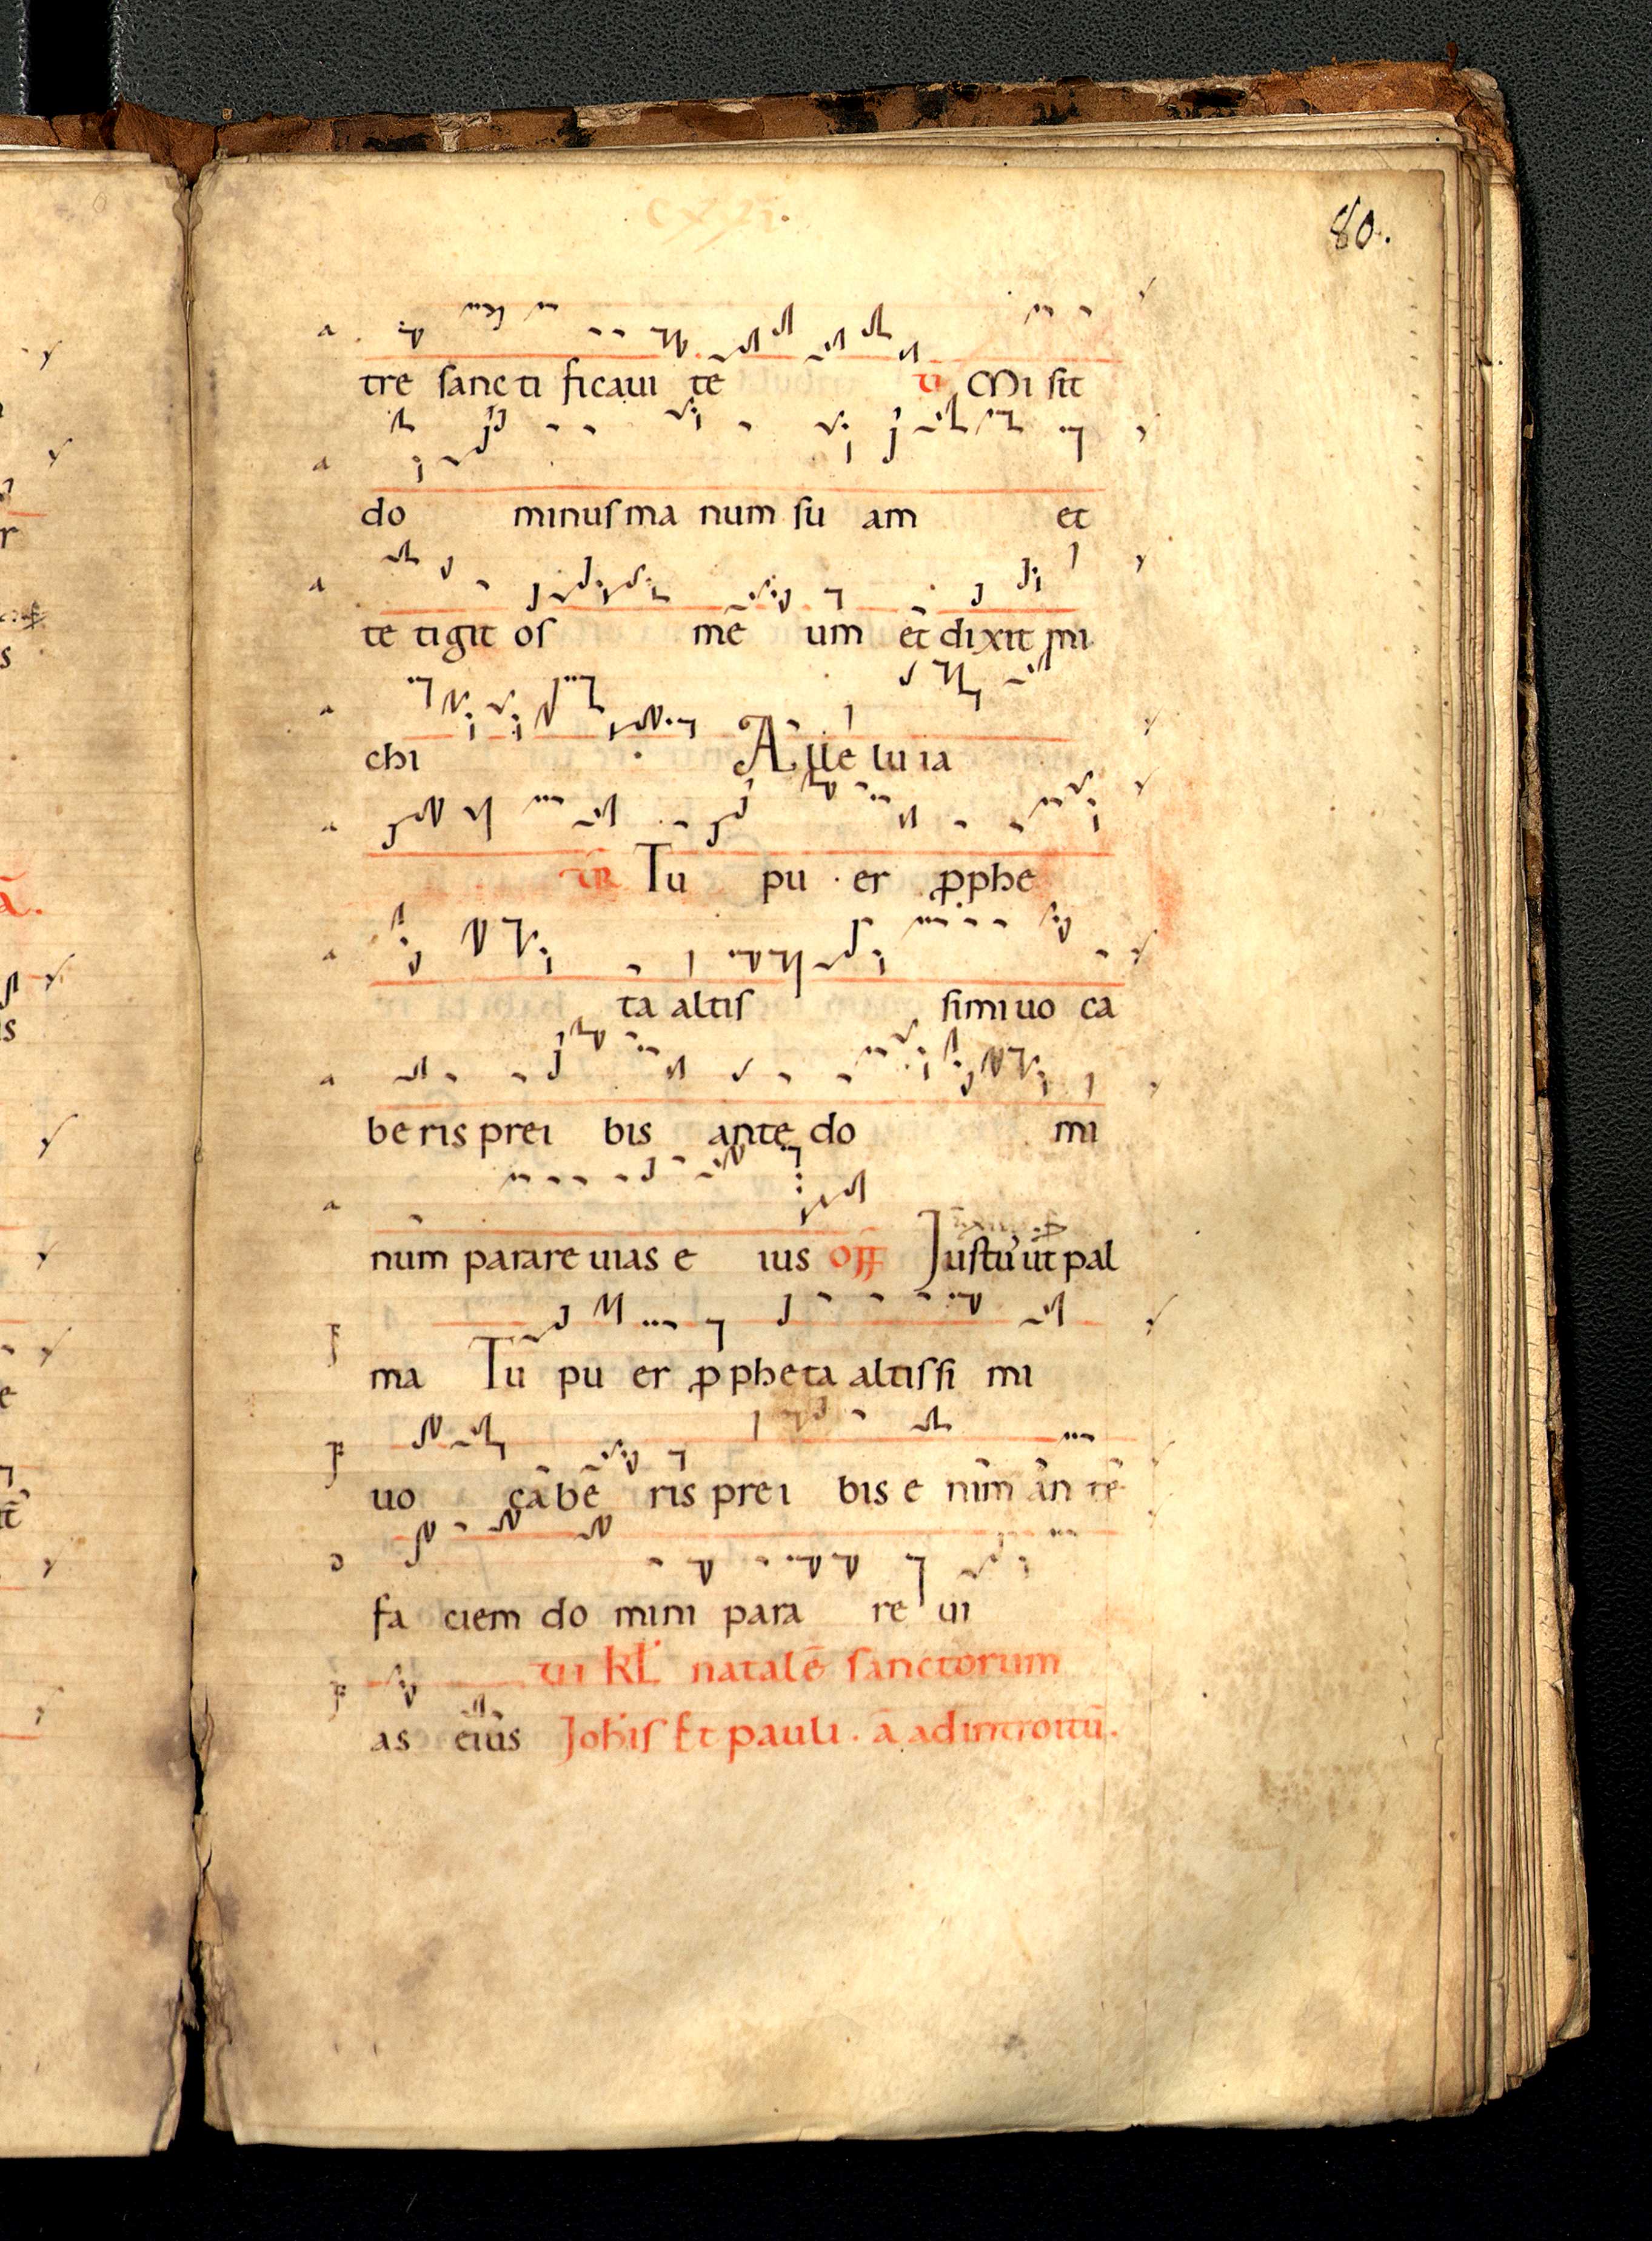 cxxi.
80.
tre sancti ficaui te v Misit
do minus manum su am et
te tigit os mē um et dixit mi
chi Alle lu ia
v Tu pu er ꝓphe
ta altis simi uo ca
be ris prei bis ante do mi
num parare uias e ius off Justu' ut pal
ma Tu pu er ꝓpheta altissi mi
uo cabe ris prei bis e nim an te
fa ciem do mini para re ui
vi kł natale sanctorum
as eius Johis Et pauli . a adintroitū.